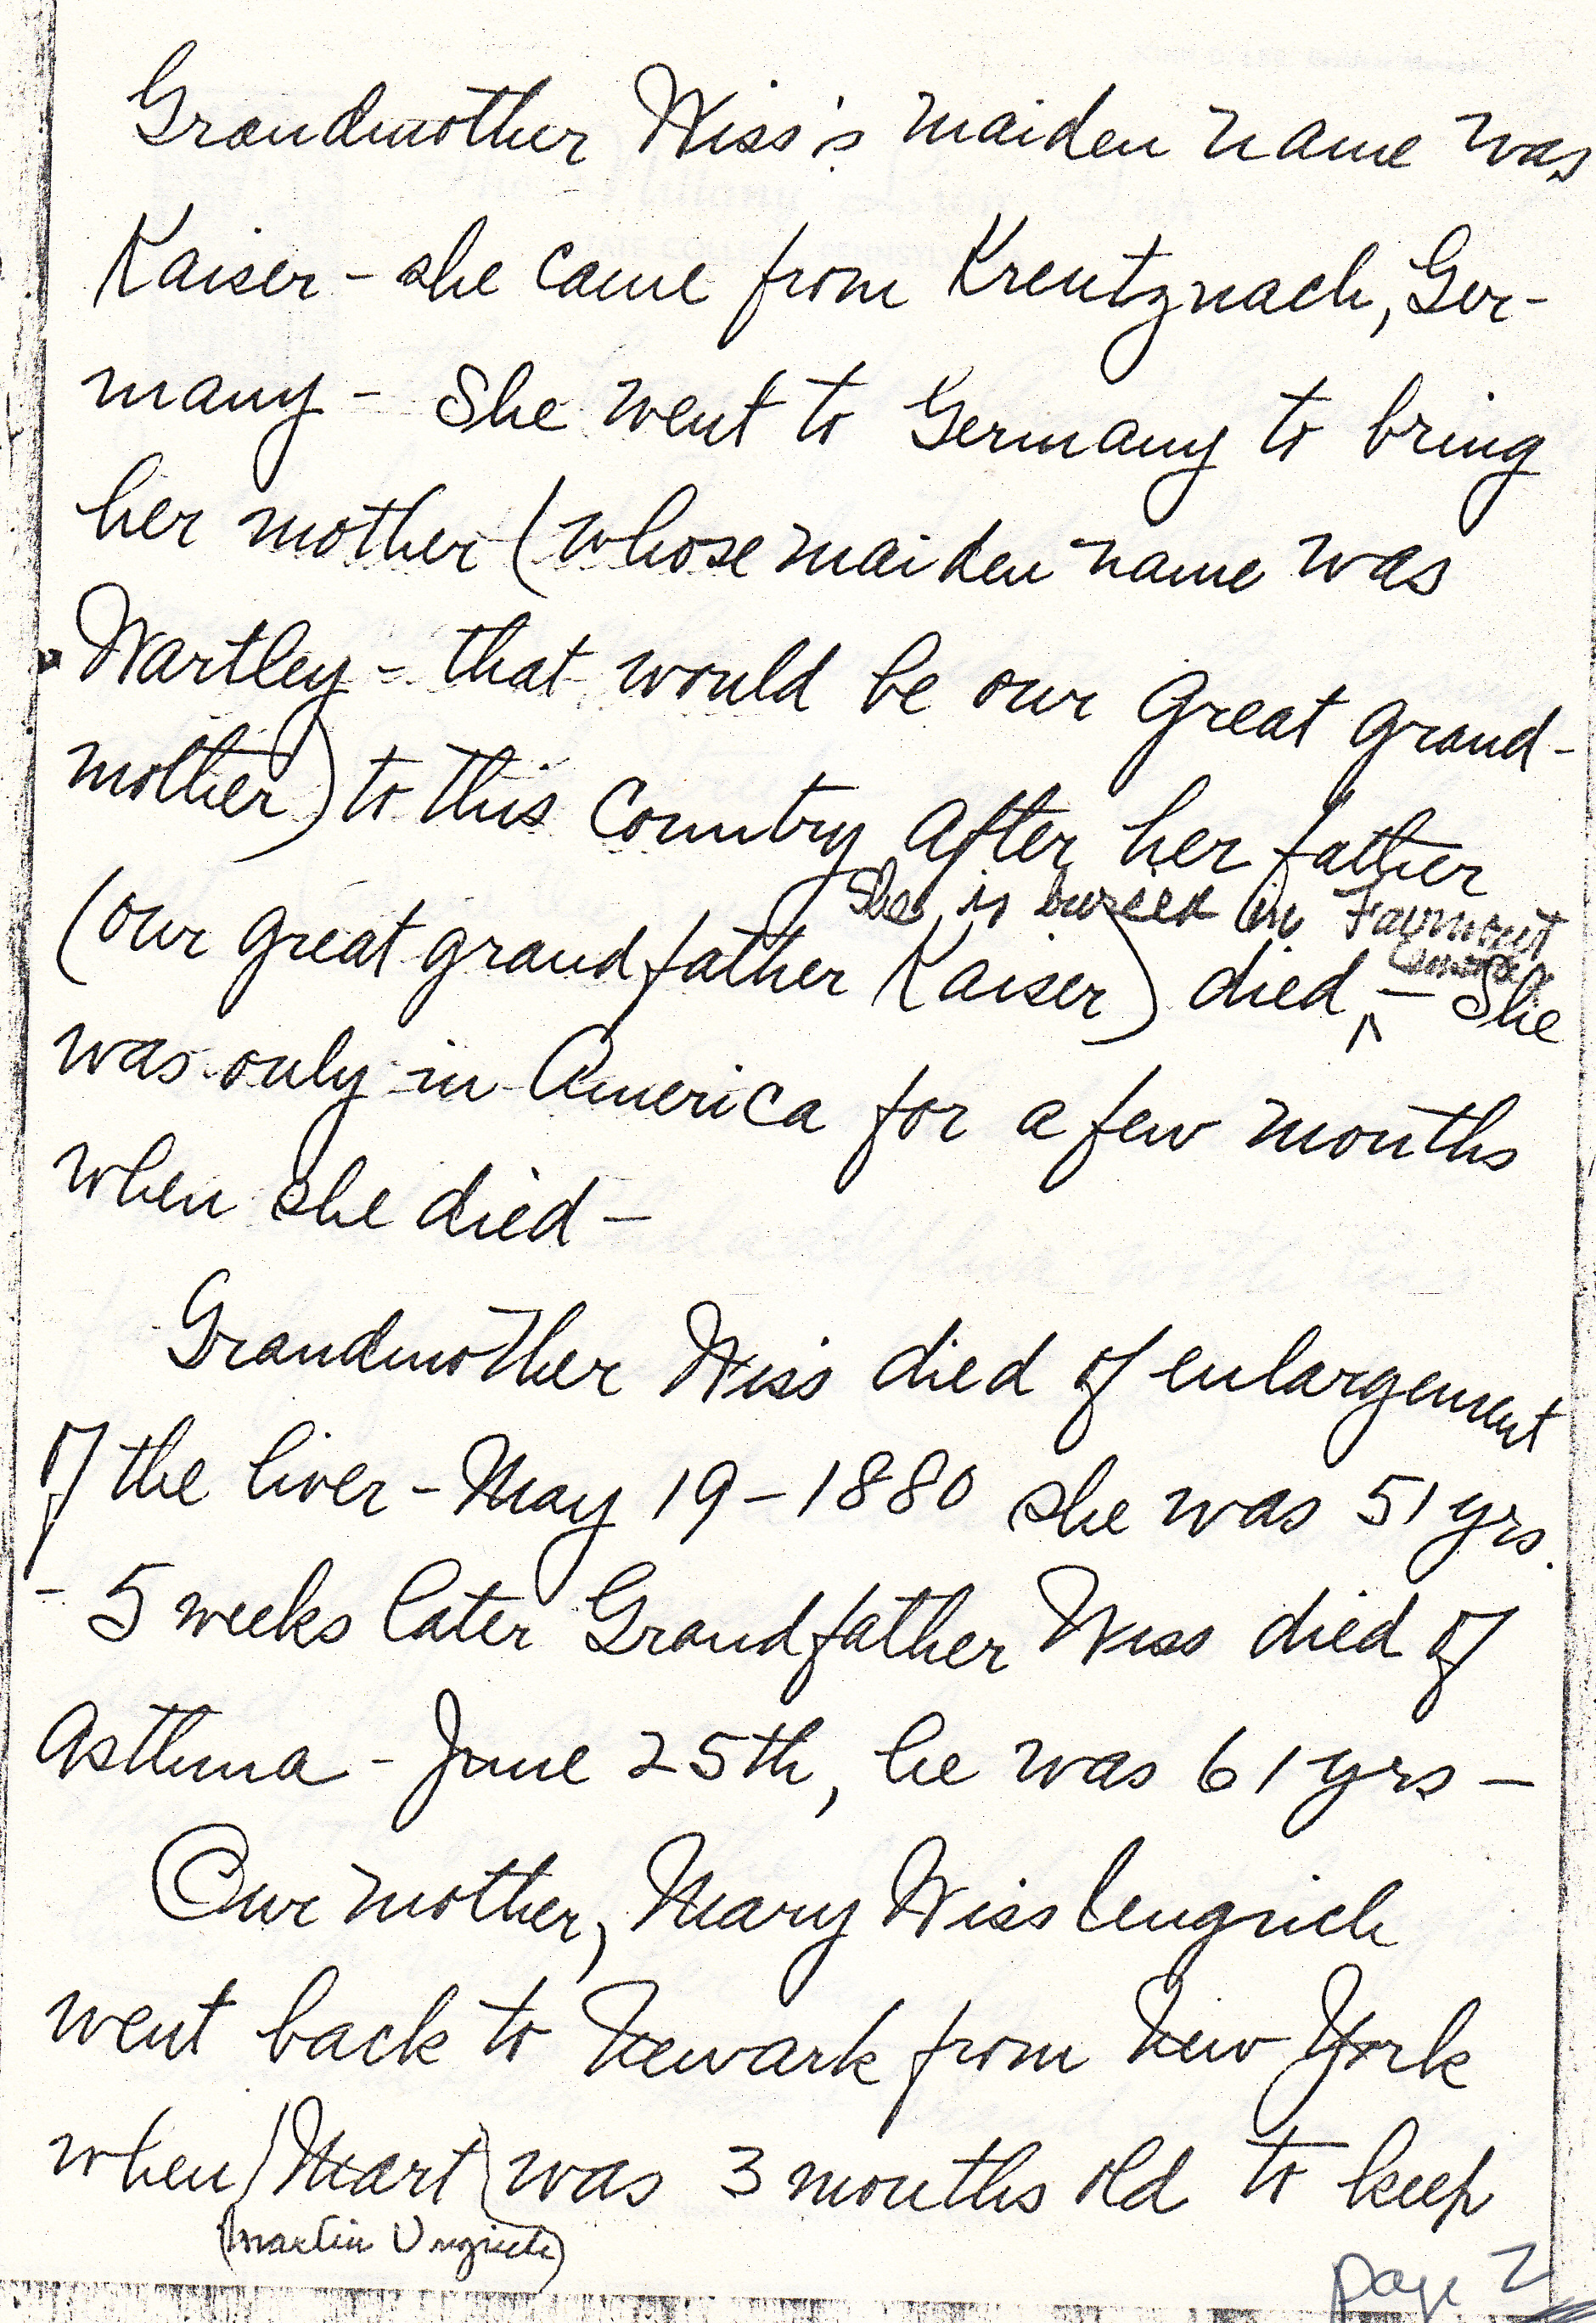 Grandmother Wiss's maiden name was
Kaiser - she came from Kreutznach, Ger-
many - She went to Germany to bring
her mother (whose maiden name was
Wartley - that would be our great grand-
mother) to this country after her father
She is buried in Faymount
(our great grandfather Kaiser) died, - She
was only in America for a few months
when she died -
Grandmother Wiss died of enlargement
of the liver - May 19 - 1880 she was 51 yrs.
- 5 weeks later Grandfather Wiss died of
Asthma - June 25th, he was 61 yrs -
Our mother, Mary Wiss Ungrich
went back to Newark from New York
when (Mart) was 3 months old to keep
(Martin Ungrich)
page 2